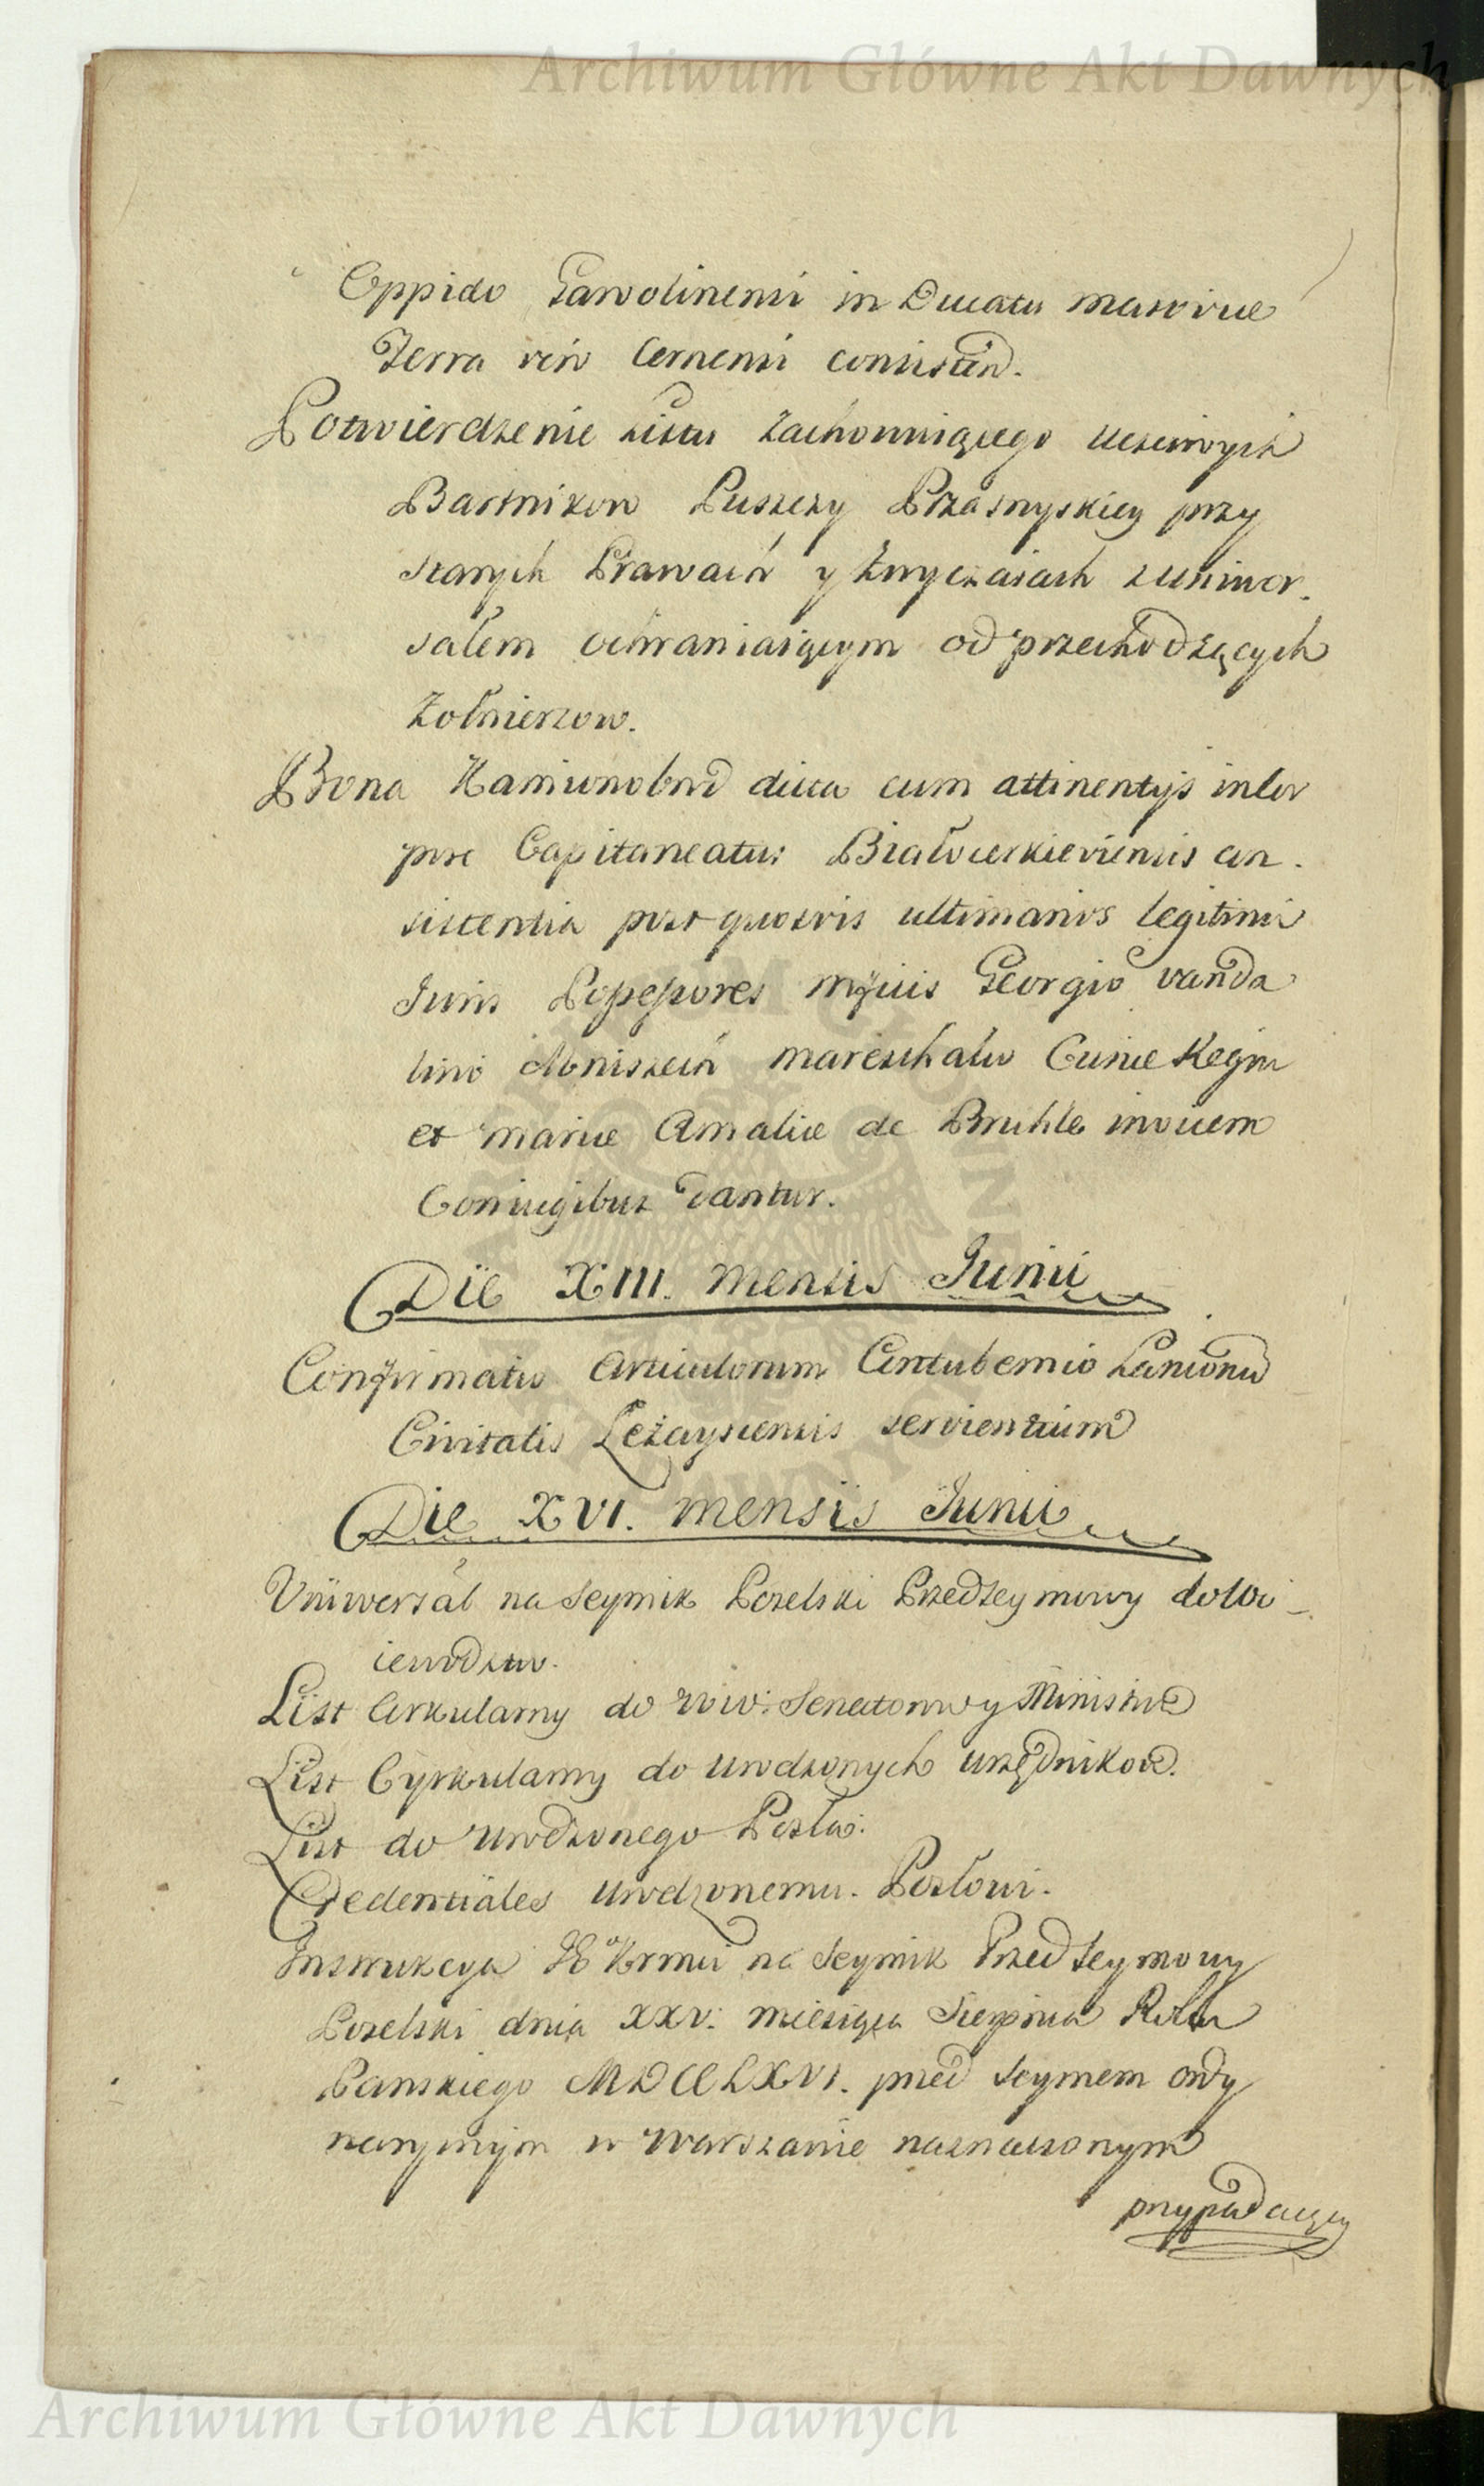 Archiwum Główne Akt Dawnych
Oppido Garvolinensi in Ducatu Masoviae
Terra vero Cernensi consisten.
Potwierdzenie Listu zachowuiącego uczciwych
Bartnikow Puszczy Przasnyskiey przy
starych Prawach y Zwyczaiach z uniwer.
salem ochraniaiącym od przechodzących
Żołnierzow.
Bona Kamionobrod dicta cum attinentijs in
pore Capitaneatus Białocerkieviensis con.
sistentia post quosvis ultimarios legitimi
Juris Possessores mfficis Georgio vanda
lino Mniszech mareschalco Curiae Regni
et mariae Amaliae de Bruhle invicem
Coniugibus dantur.
Die XIII. mensis Junii
Confirmatio Articulorum Contubernio Lanionu
Civitatis Leżayscensis servientium
Die XVI. mensis Junii
Vniwersał na Seymik Poselski Przedseymowy do Wo-
iewodztw.
List Cirkularny do ww: Senatorow y Ministrow
List Cyrkularny do Urodzonych urzędnikow.
List do Urodzonego Posła.
Credentiales Urodzonemu. Posłowi.
Instrukcya JKrmci na Seymik Przedseymowy
Poselski dnia XXV. miesiąca Sierpnia Roku
Panskiego MDCCLXVI. przed Seymem ordy
naryinym w Warszawie naznaczonym
przypadaiący
Archiwum Główne Akt Dawnych